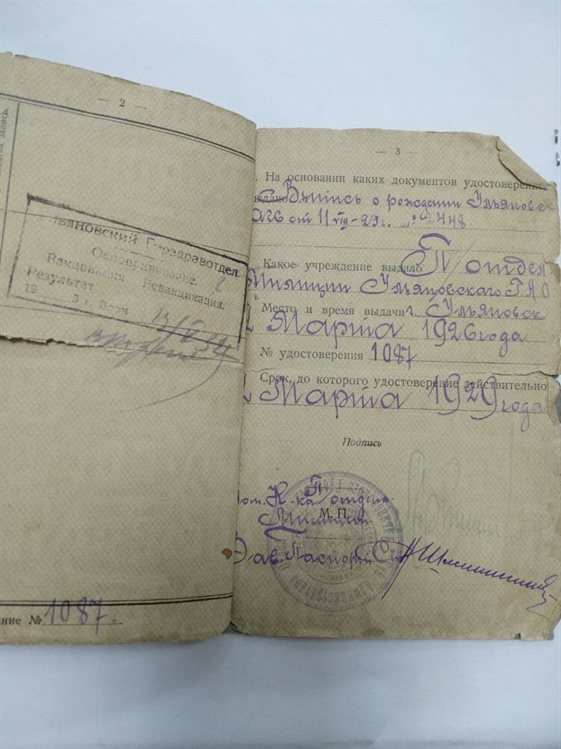 — 2 —
Ульяновский Горздравотдел.
Оспопрививание.
Вакцинация Ревакцинация.
Результат
19 3 г.
№ 1087.
— 3 —
На основании каких документов удостоверение
Выпись о рождении Ульяновск
от 11
448
Какое учреждение выдало П/отдел
Милиции Ульяновского Г.А.О.
Место и время выдачи г. Ульяновск
2 Марта 1926 года
№ удостоверения 1087
Срок, до которого удостоверение действительно
2 Марта 1929 года
Подпись
Пом. Н-ка П отдела
М. П.
Милиции
Зав. Паспорт. Ст